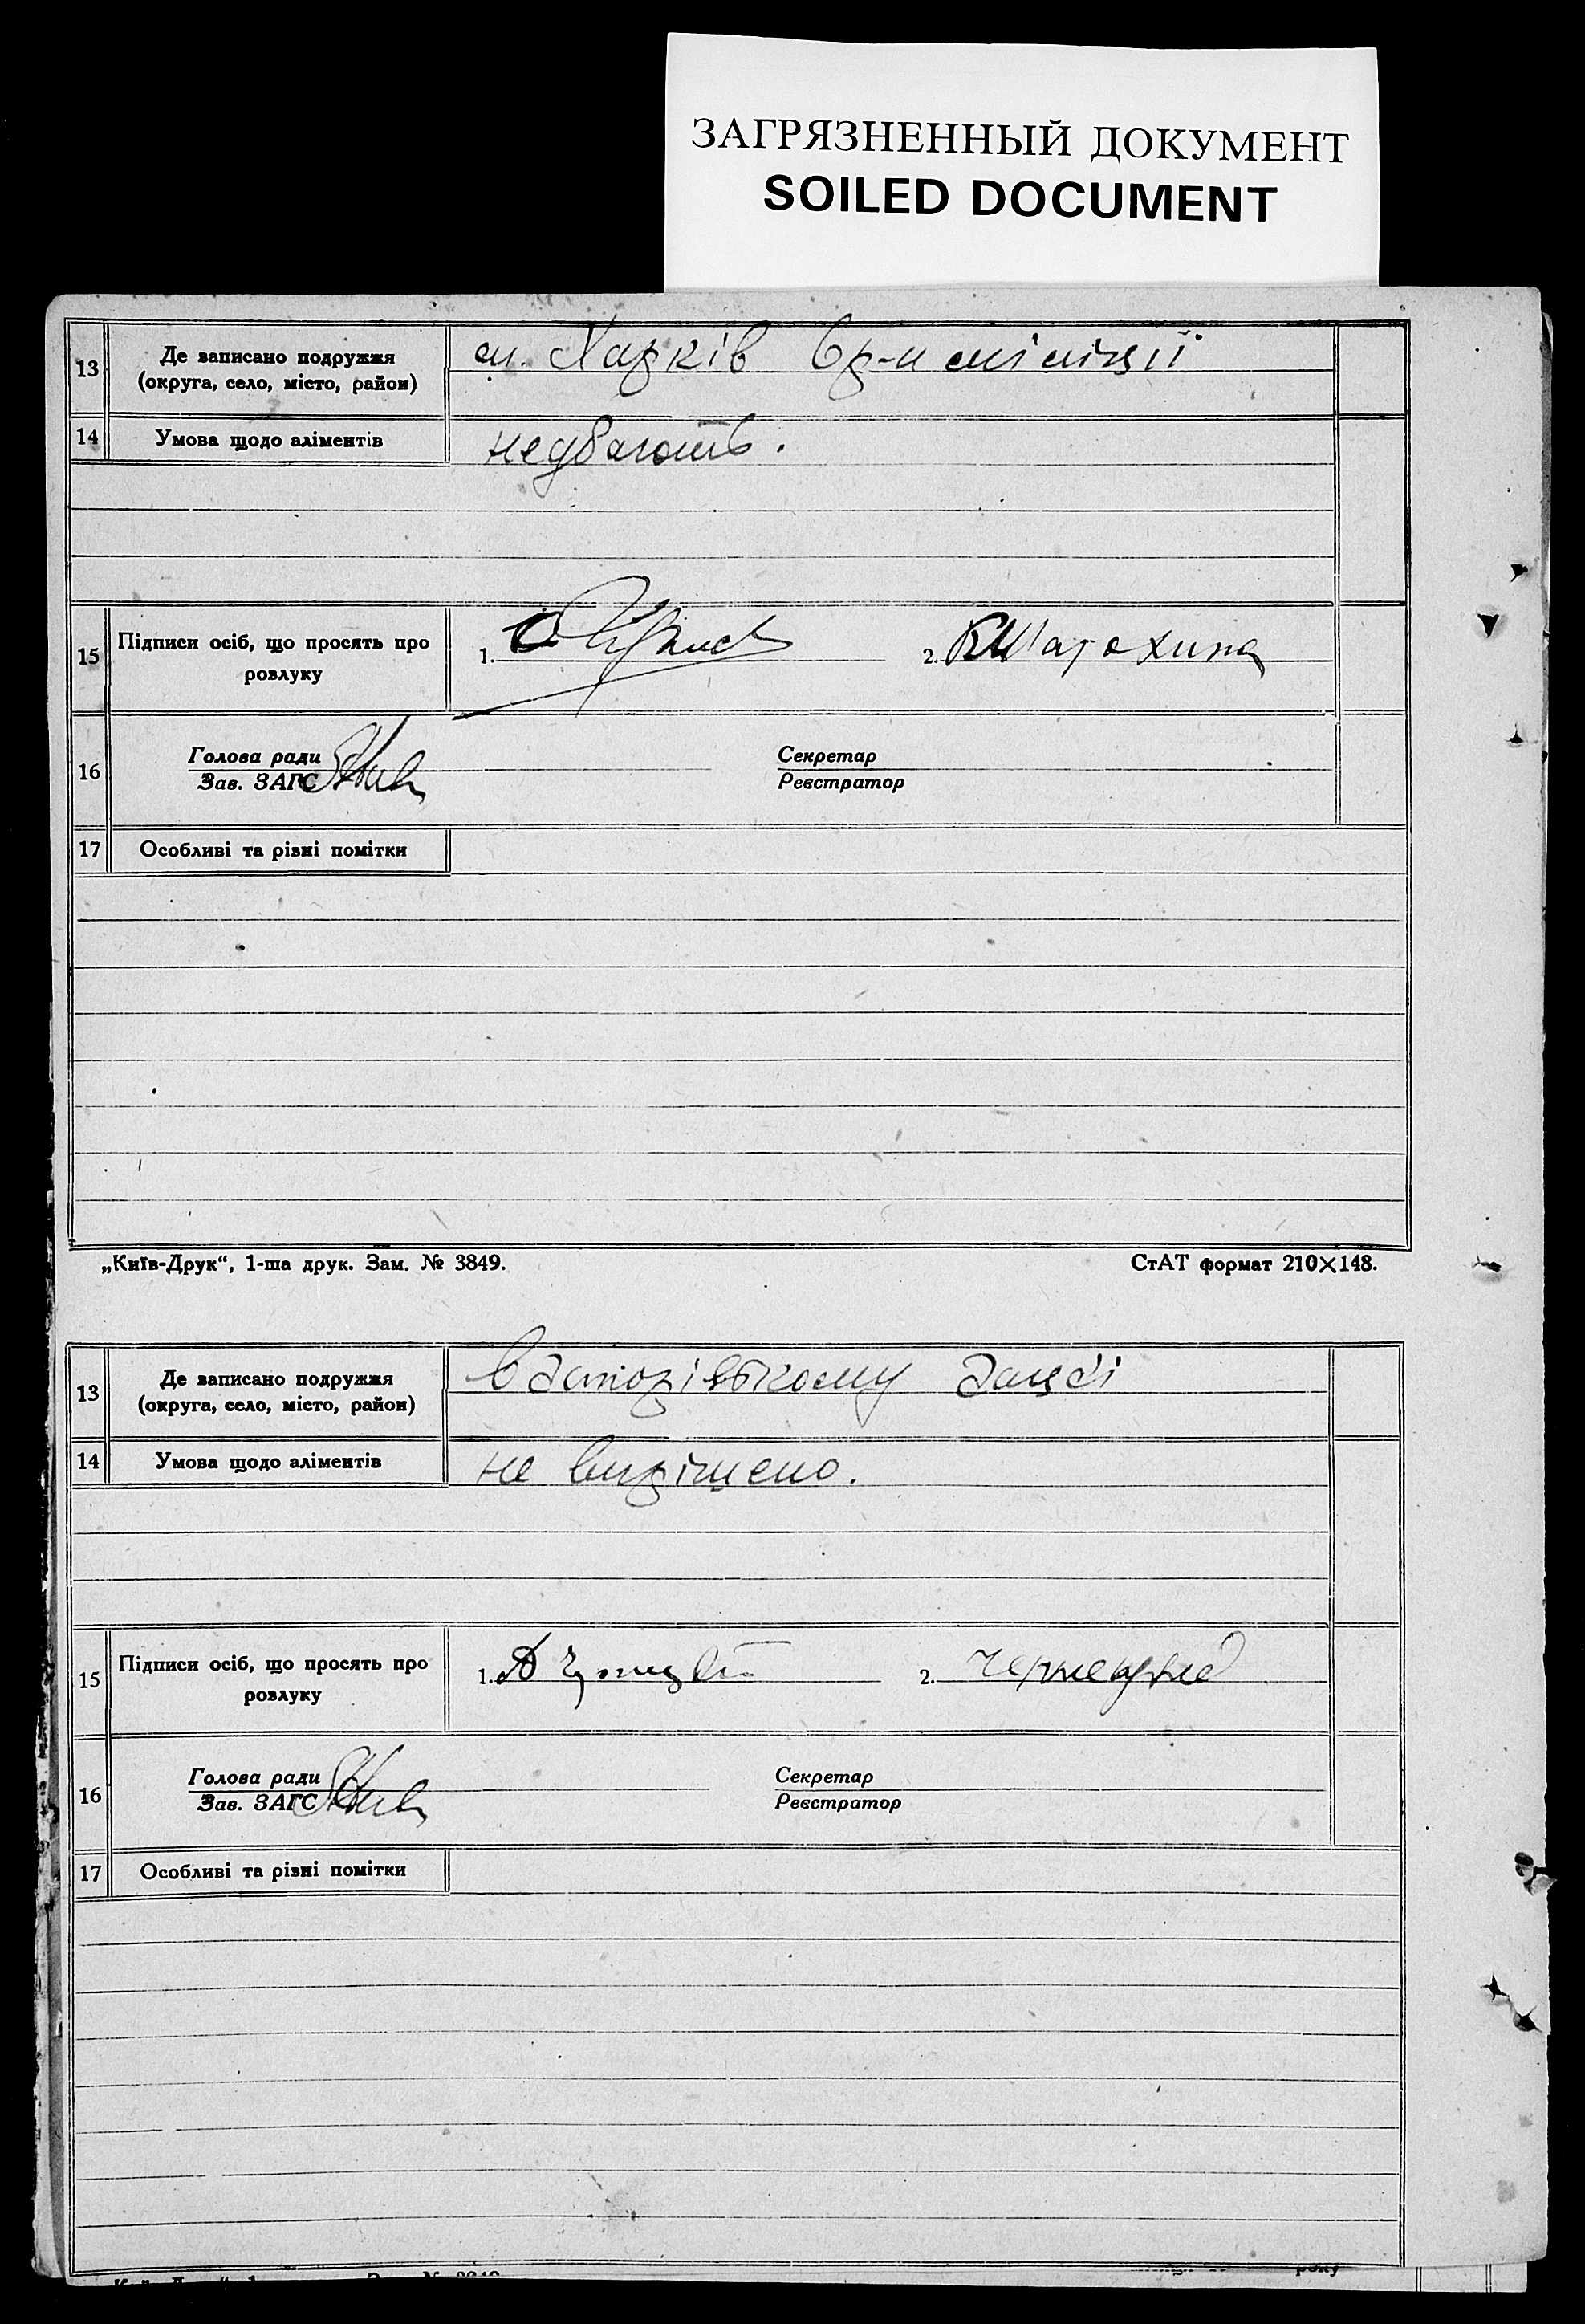 ЗАГРЯЗНЕННЫЙ ДОКУМЕНТ
SOILED DOCUMENT
13 Де записано подружжя (округа, село, місто, район) м. Харків 6 р-н міліції
14 Умова щодо аліментів не дбають.
15 Підписи осіб, що просять про розлуку 1. 2. Шарохина
16 Голова ради Секретар
Зав. ЗАГС Реєстратор
17 Особливі та різні помітки
„Київ-Друк“, 1-ша друк. Зам. № 3849. СтАТ формат 210×148.
13 Де записано подружжя (округа, село, місто, район) в Запорізькому Загсі
14 Умова щодо аліментів не вирішено.
15 Підписи осіб, що просять про розлуку 1. 2.
16 Голова ради Секретар
Зав. ЗАГС Реєстратор
17 Особливі та різні помітки